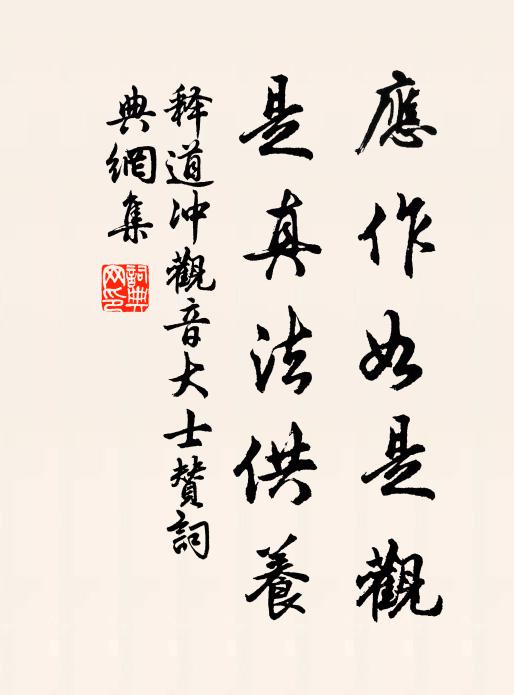 應作如是觀
是真法供養
释道冲觀音大士赞詞
典網集
詞典网印